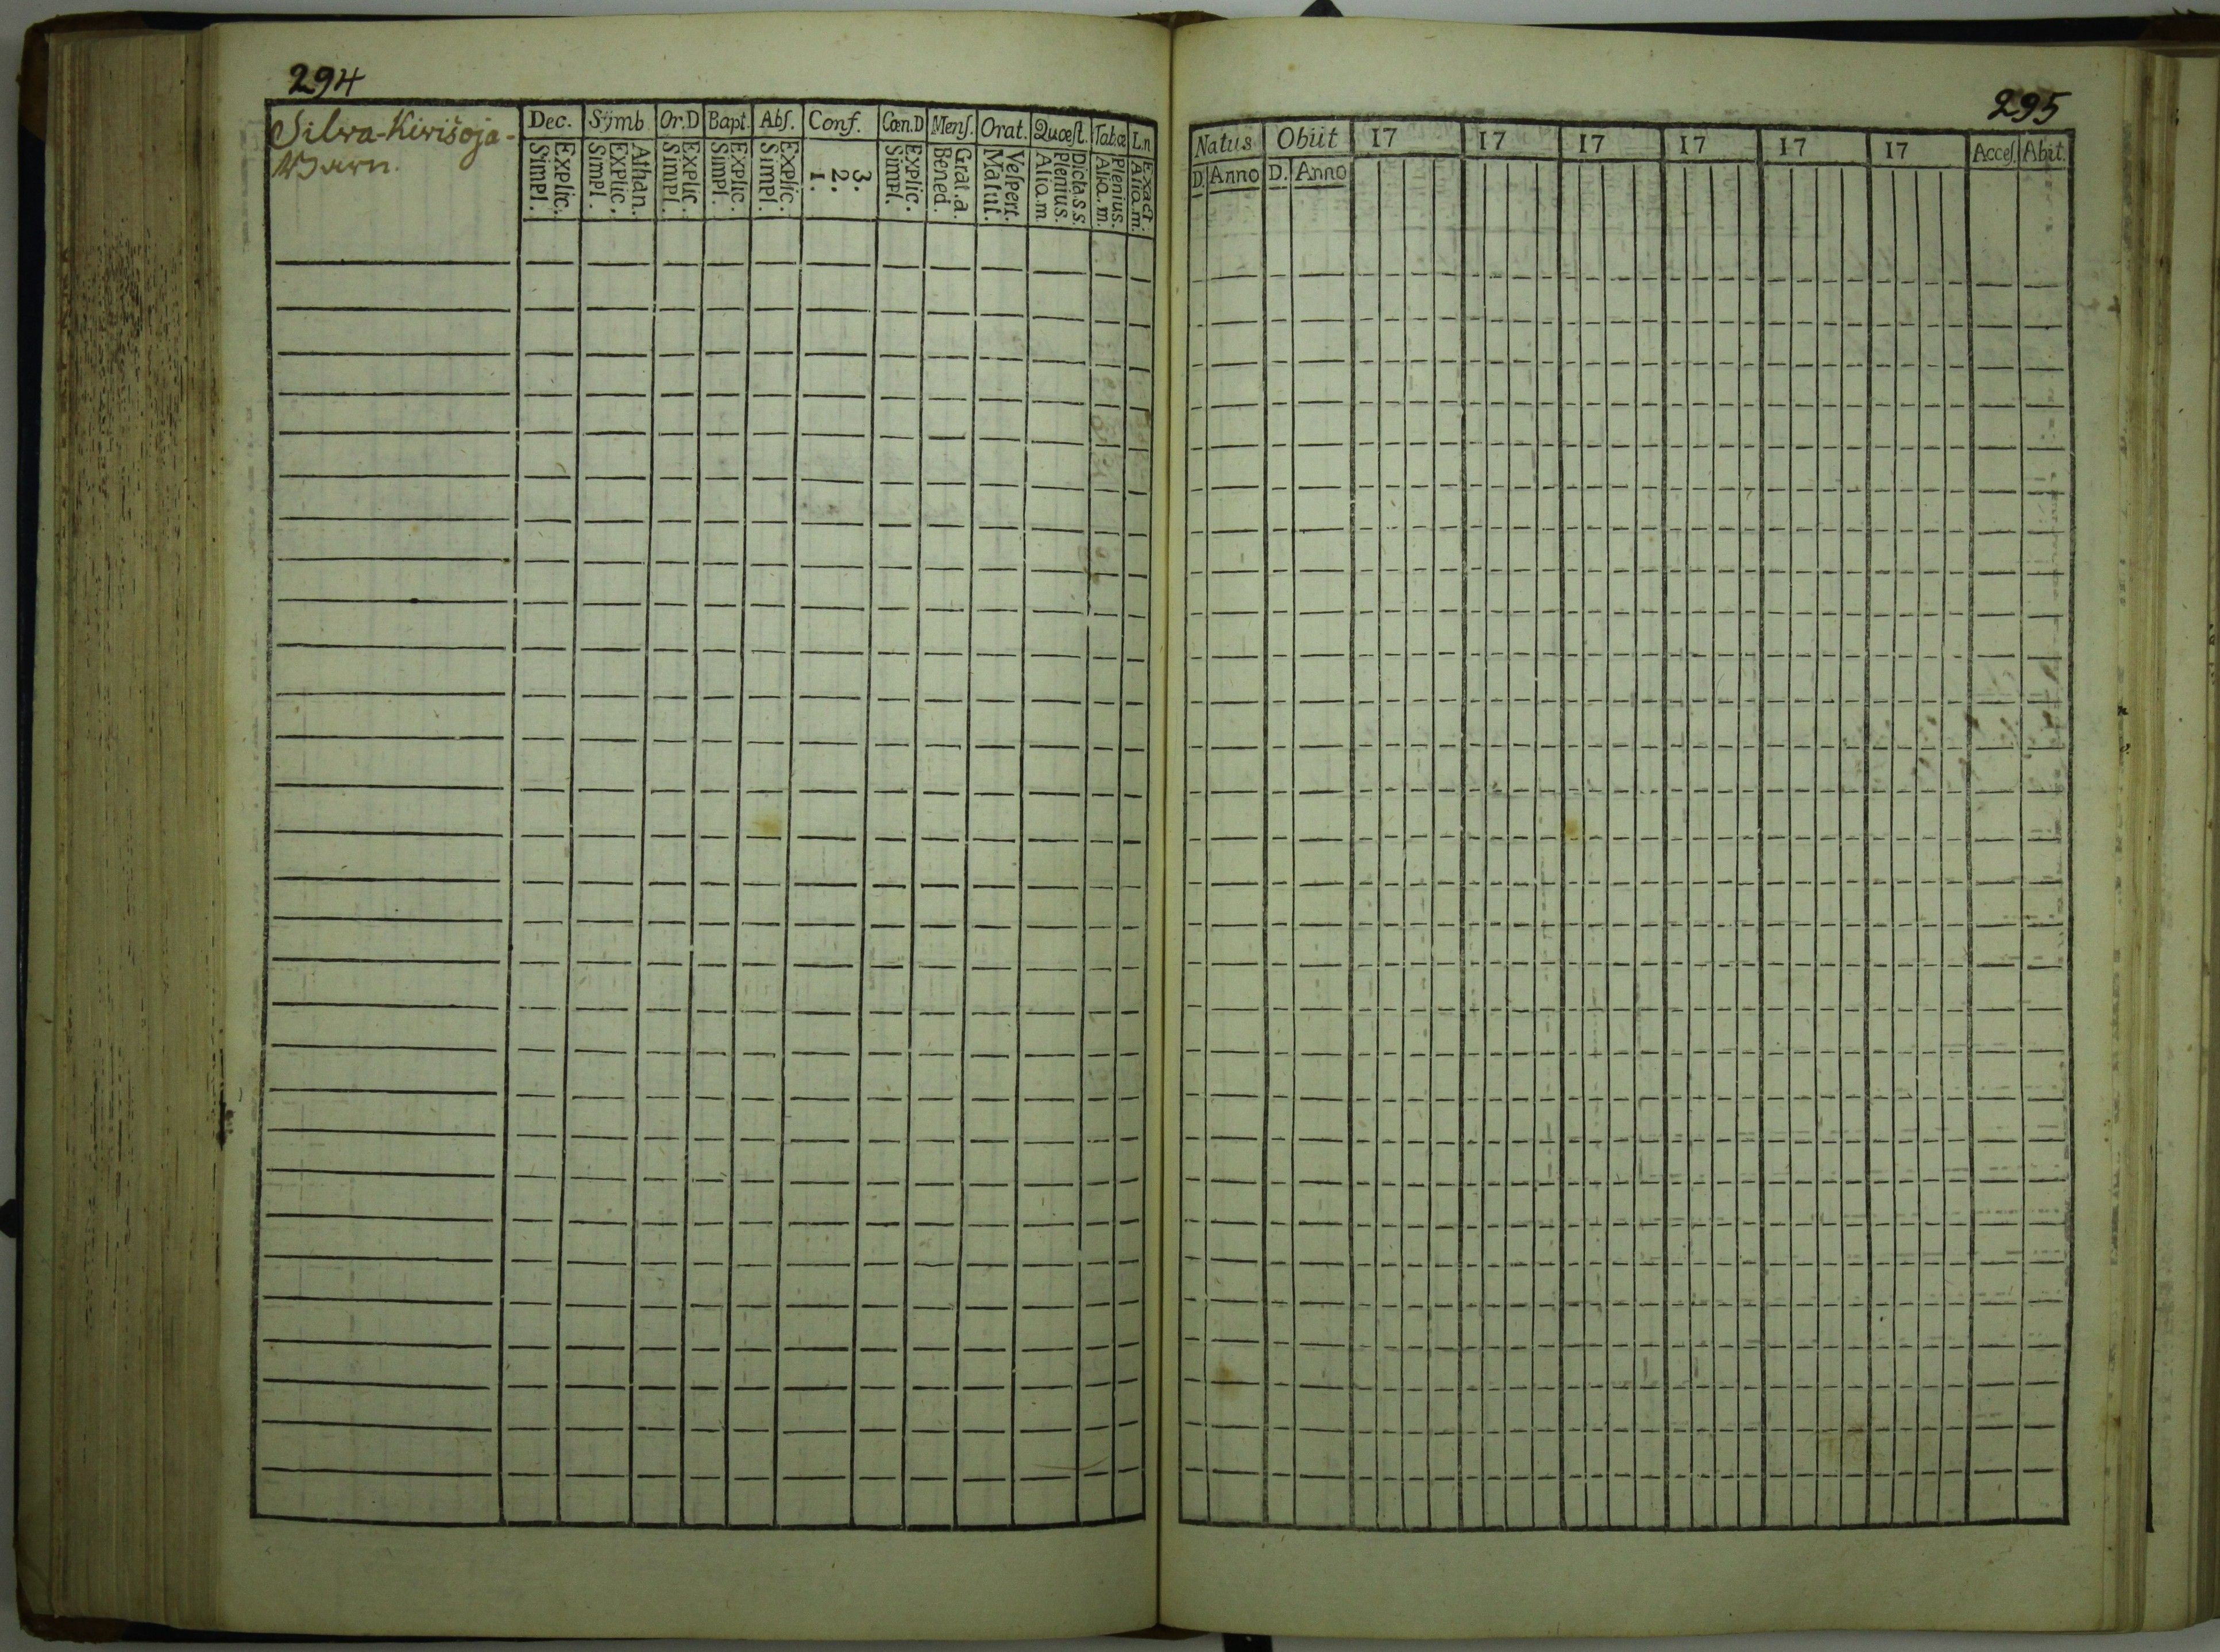 294
Silwa-Kiwišoja-
Barn.
Dec. Symb. Or.D Bapt. Abſ. Conf. Cœn.D Menſ. Orat. Quœſt. Tab.œ L.n
Simpl. Explic. Simpl. Explic. Athan. Simpl. Explic. Simpl. Explic. Simpl. Explic. 1. 2. 3. Simpl. Explic. Bened. Grat.a. Matut. Veſpert. Alio.m. Plenius. Dicta.s.s. Alio.m. Plenius. Alio.m. Exact.
295
Natus Obiit 17 17 17 17 17 17 Acceſ. Abit.
D. Anno D. Anno